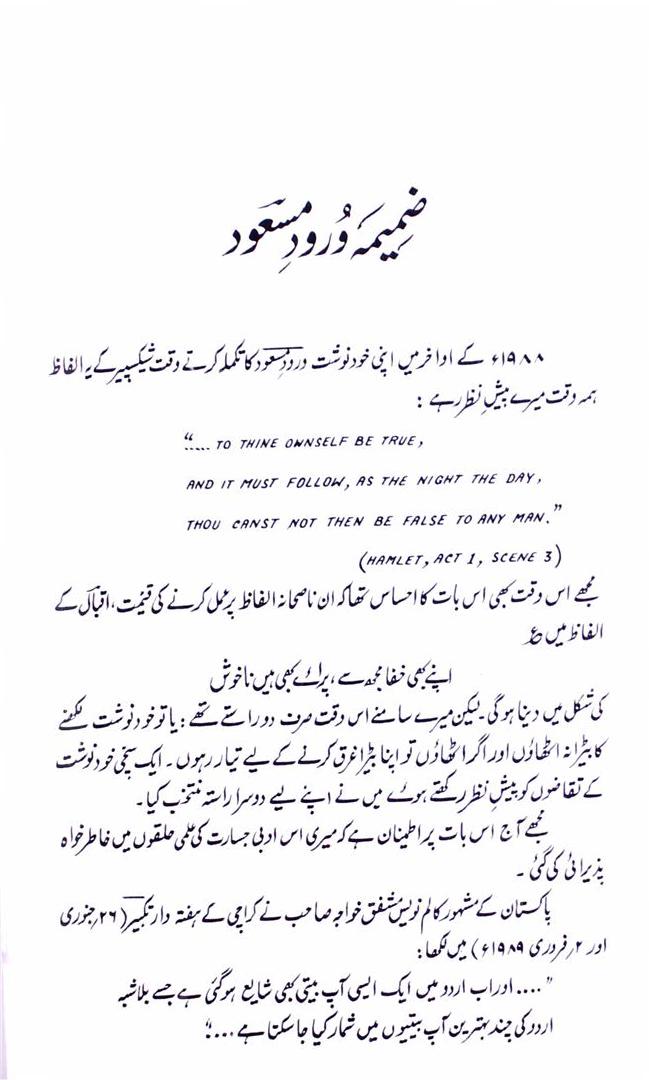 ضمیمہ وُرودِ مسعود
۱۹۸۸ء کے اواخر میں اپنی خودنوشت ورودِ مسعود کا تکملہ کرتے وقت شیکسپیر کے یہ الفاظ
ہمہ وقت میرے پیشِ نظر رہے :
“.... TO THINE OWNSELF BE TRUE,
AND IT MUST FOLLOW, AS THE NIGHT THE DAY,
THOU CANST NOT THEN BE FALSE TO ANY MAN.”
(HAMLET, ACT 1, SCENE 3)
مجھے اس وقت بھی اس بات کا احساس تھا کہ ان ناصحانہ الفاظ پر عمل کرنے کی قیمت، اقبالؔ کے
الفاظ میں ع
اپنے بھی خفا مجھ سے، پرائے بھی ہیں ناخوش
کی شکل میں دینا ہوگی۔ لیکن میرے سامنے اس وقت صرف دو راستے تھے : یا تو خودنوشت لکھنے
کا بیڑا نہ اٹھاؤں اور اگر اٹھاؤں تو اپنا بیڑا غرق کرنے کے لیے تیار رہوں۔ ایک سچی خودنوشت
کے تقاضوں کو پیشِ نظر رکھتے ہوئے میں نے اپنے لیے دوسرا راستہ منتخب کیا۔
مجھے آج اس بات پر اطمینان ہے کہ میری اس ادبی جسارت کی علمی حلقوں میں خاطر خواہ
پذیرائی کی گئی ۔
پاکستان کے مشہور کالم نویس مشفق خواجہ صاحب نے کراچی کے ہفتہ وار تکبیر (۲۶؍جنوری
اور ۲؍فروری ۱۹۸۹ء) میں لکھا:
”.... اور اب اردو میں ایک ایسی آپ بیتی بھی شایع ہوگئی ہے جسے بلاشبہ
اردو کی چند بہترین آپ بیتیوں میں شمار کیا جا سکتا ہے ...“